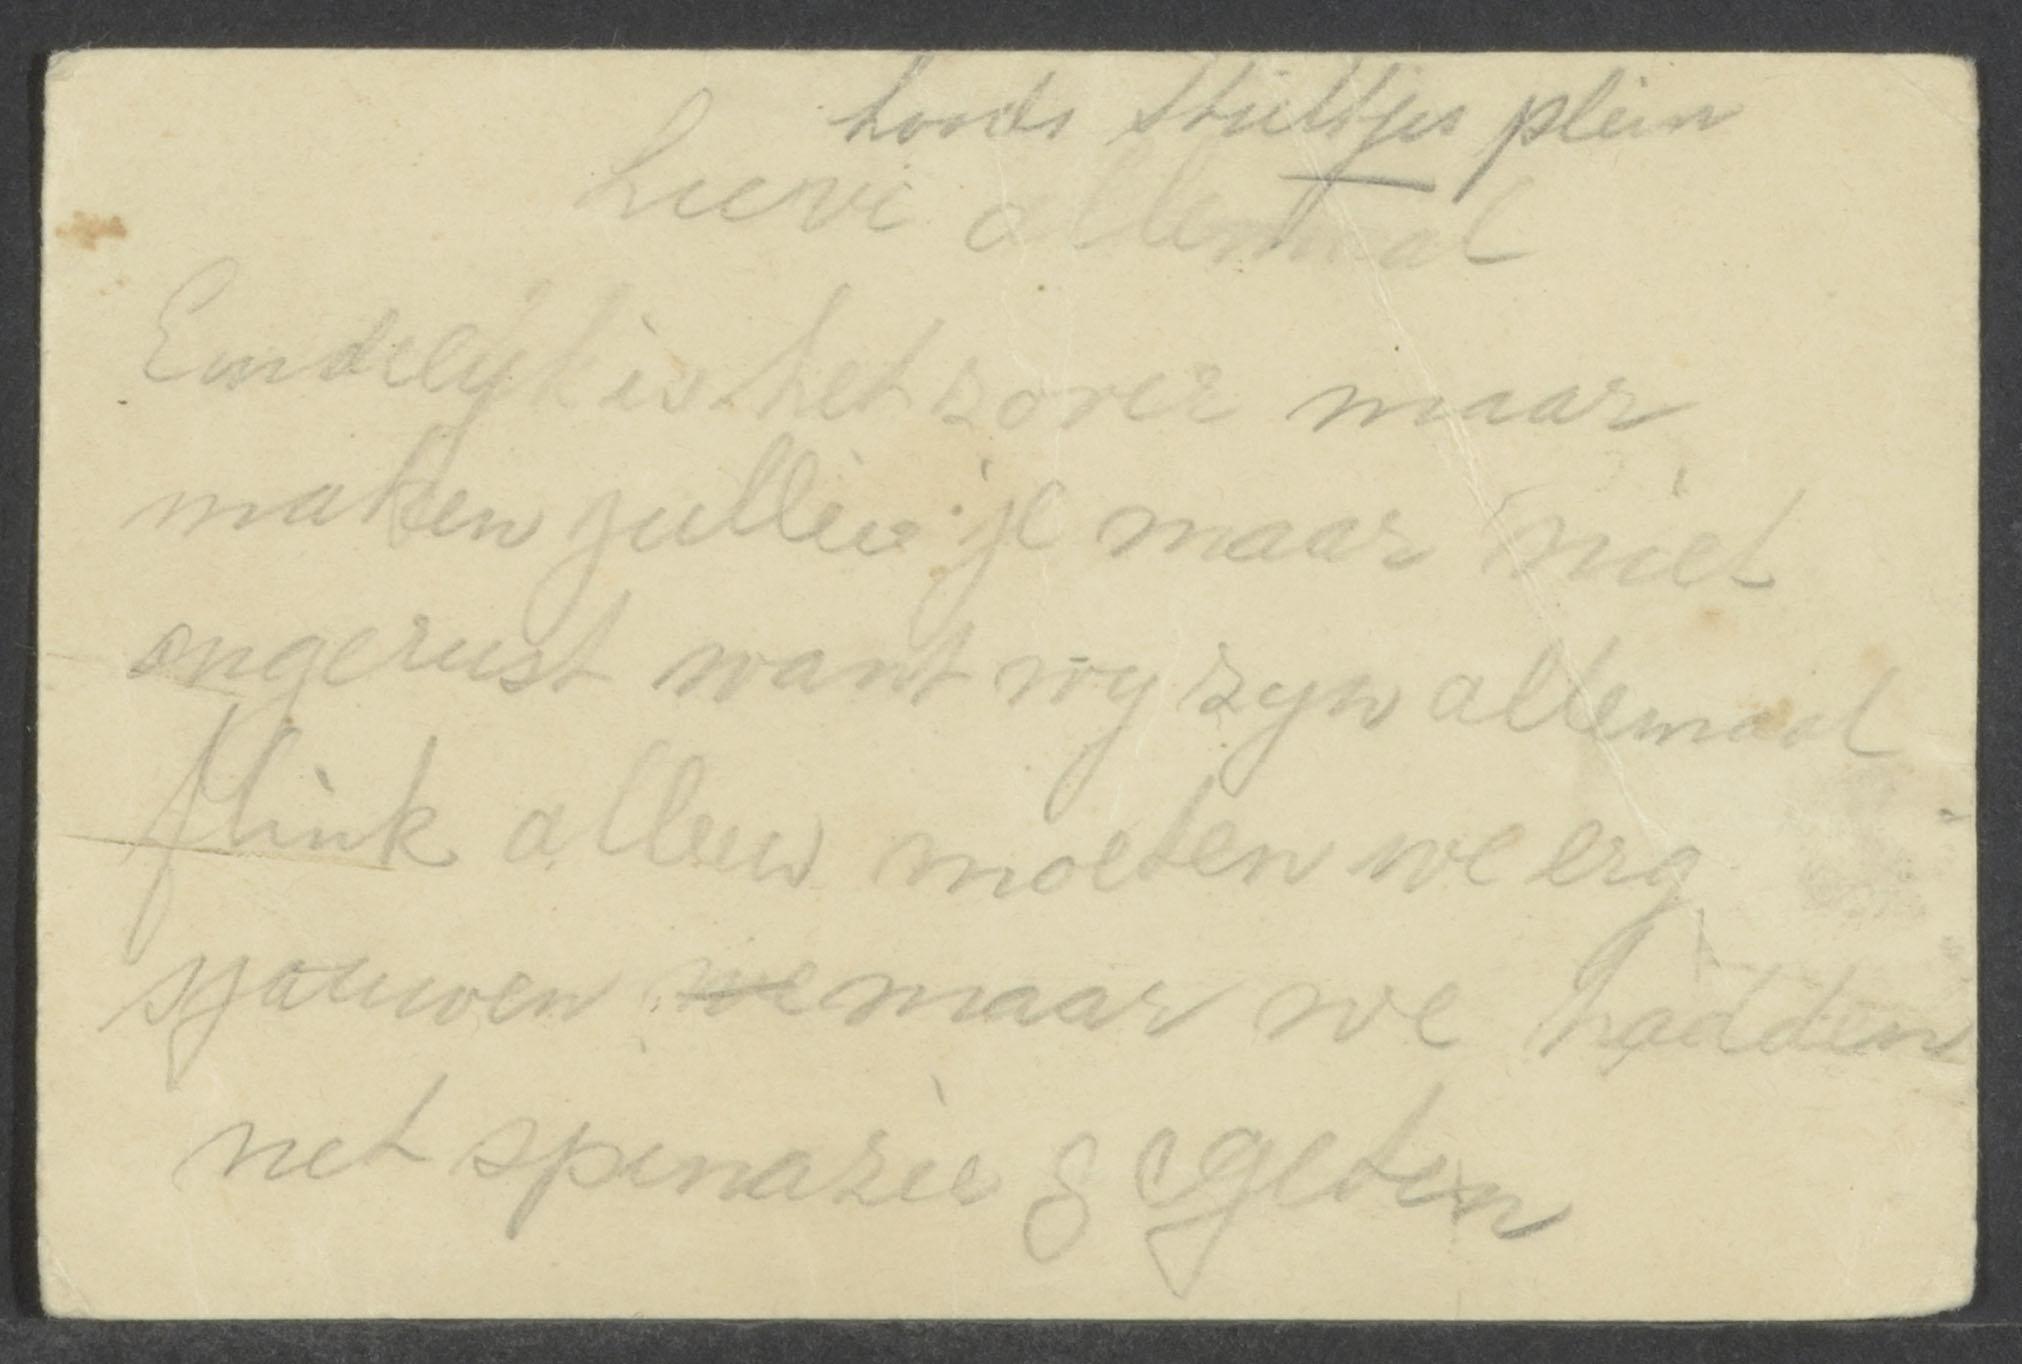 Loods Stieltjes plein
Lieve allemaal
Eindelijk is het zover maar
maken jullie je maar niet
ongerust want wij zijn allemaal
flink alleen moeten we erg
sjouwen we maar we hadden
net spinazie gegeten